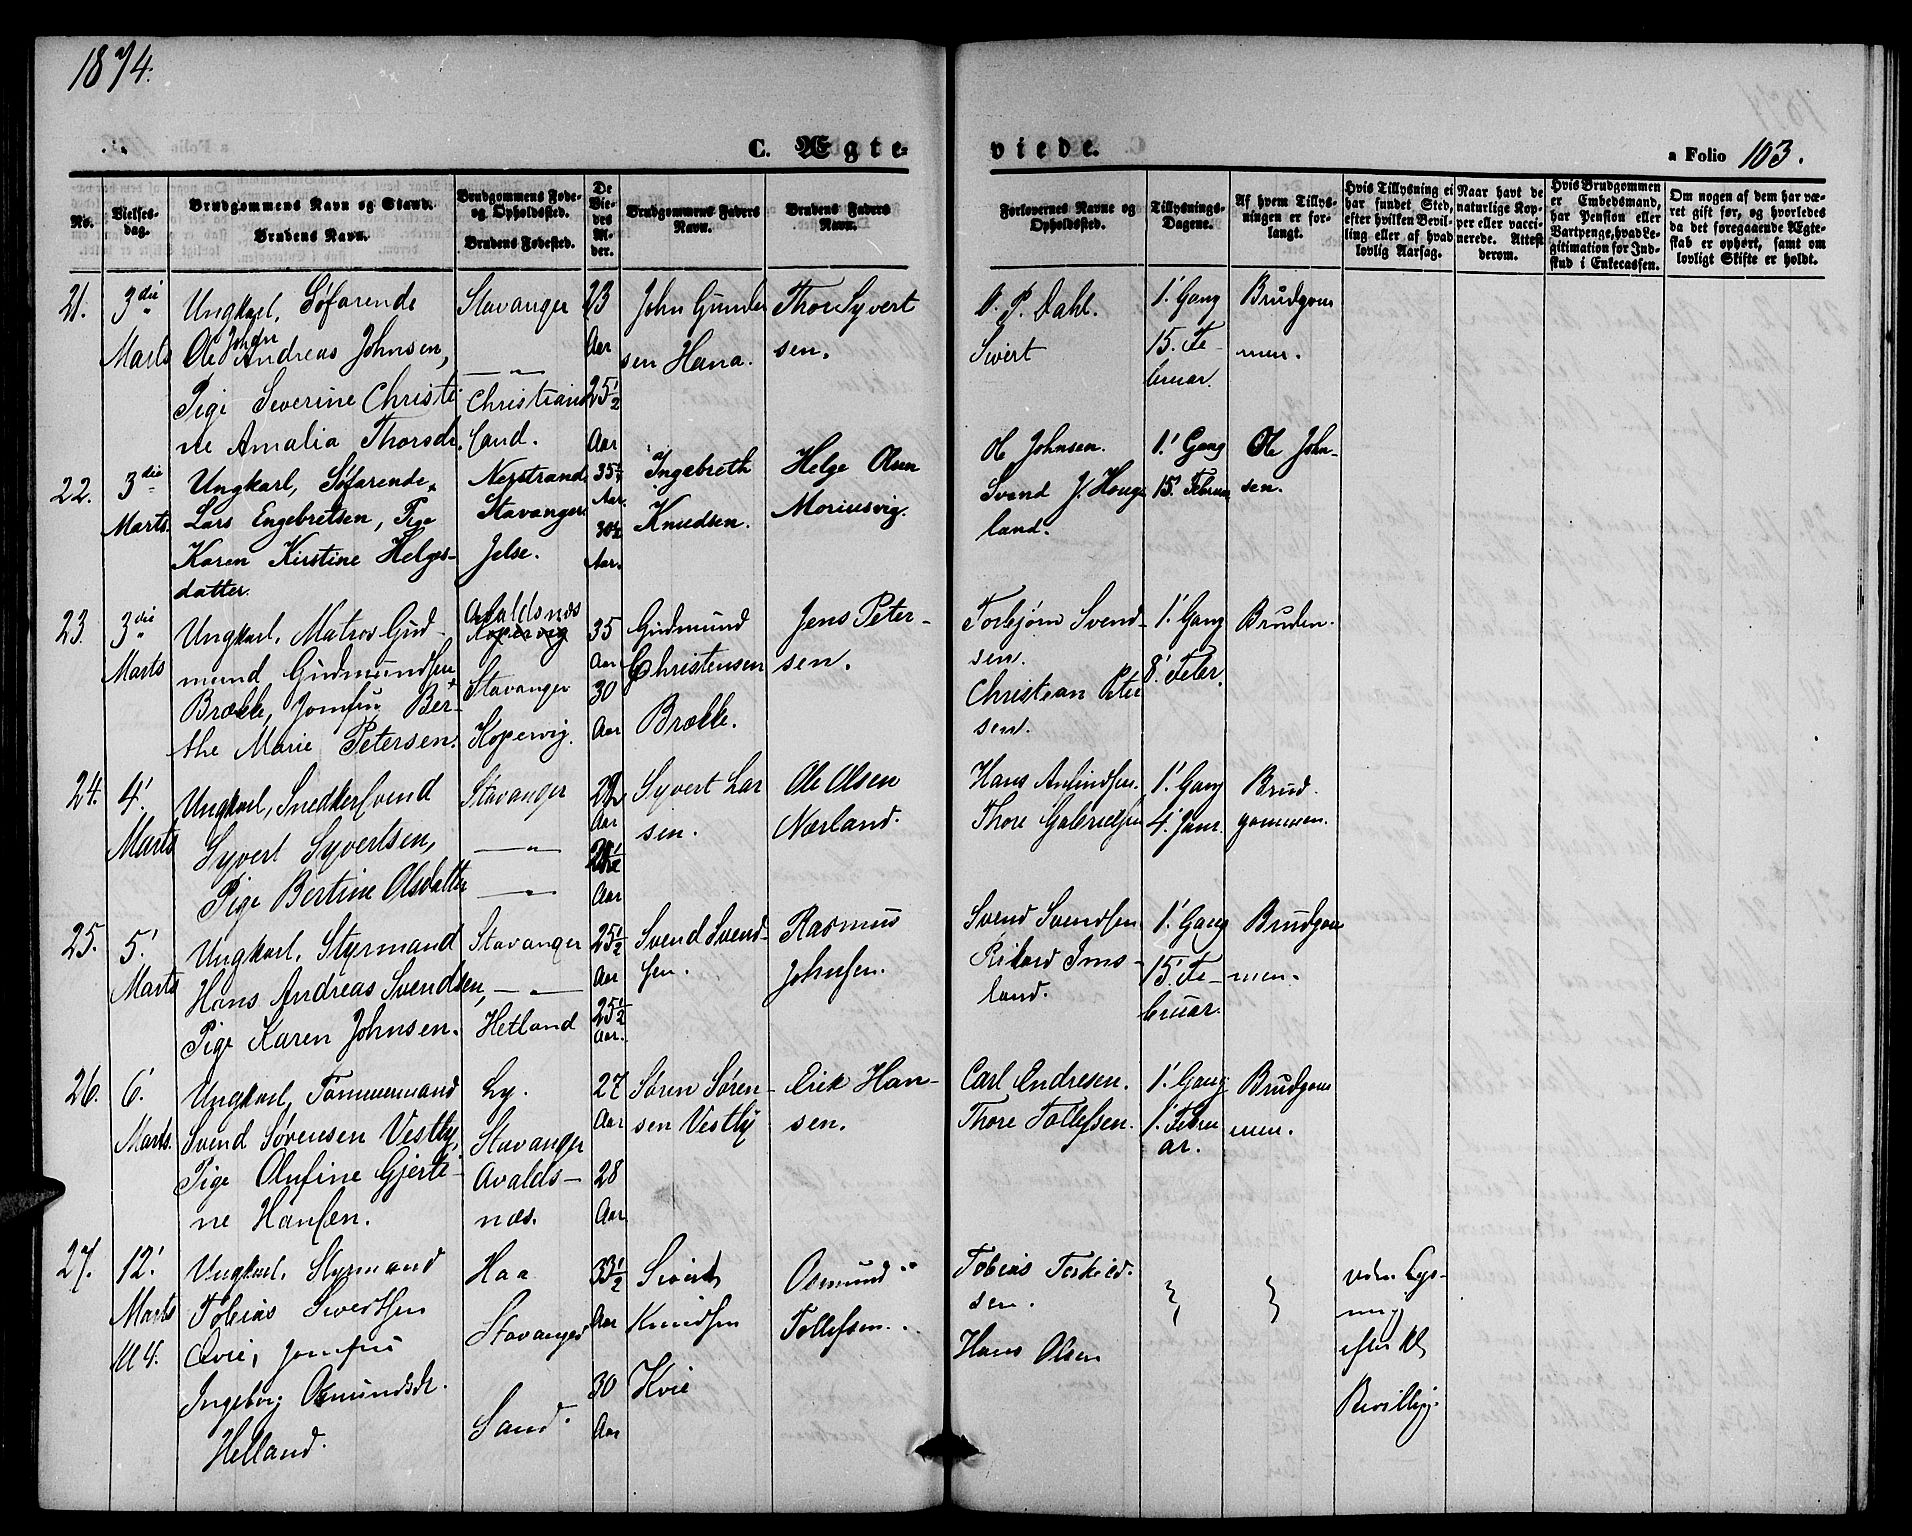 1874.
C. Ægte-
viede.
a Folio 103.
No.
Vielses-
dag.
Brudgommens Navn og Stand.
Brudens Navn.
Brudgommens Føde-
og Opholdssted.
Brudens Fødested.
De
Vie-
des
Al-
der.
Brudgommens Faders
Navn.
Brudens Faders
Navn.
Forlovernes Navne og
Opholdssted.
Tillysnings-
Dagene.
Af hvem Tillys-
ningen er for-
langt.
Hvis Tillysning ei
har fundet Sted,
efter hvilken Bevil-
ling eller af hvad
lovlig Aarsag.
Naar havt de
naturlige Kop-
per eller vacci-
nerede. Attest
derom.
Hvis Brudgommen
er Embedsmand,
har Pension eller
Vartpenge, hvad Le-
gitimation for Ind-
skud i Enkecassen.
Om nogen af dem har væ-
ret gift før, og hvorledes
da det foregaaende Ægte-
skab er ophørt, samt om
lovligt Skifte er holdt.
21.
3die
Marts
Ungkarl, Søfarende
Ole John Andreas Johnsen,
Pige Severine Christi
ne Amalia Thorsdr.
Stavanger
— " —
Christian
sand.
23
Aar
25½
Aar
John Gunder
sen Hana.
Thor Syvert
sen.
O. P. Dahl.
Sivert
1' Gang
15. Fe-
bruar.
Brudgom
men.
22.
3die
Marts.
Ungkarl, Søfarende
Lars Engebretsen, Pige
Karen Kirstine Helges-
datter.
Nerstrand
Stavanger
Jelse.
35½
Aar.
30½
Aar.
Ingebreth
Knudsen.
Helge Olsen
Moriusvig.
Ole Johnsen.
Svend J. Houge
land.
1' Gang
15' Februar
Ole John-
sen.
23.
3die
Marts
Ungkarl, Matros Gud-
mund Gudmundsen
Brække, Jomfru Ber-
the Marie Petersen.
Avaldsnæs
Kopervig
Stavanger
Kopervig.
35
Aar
30
Aar
Gudmund
Christensen
Brække.
Jens Peter-
sen.
Torbjørn Svend-
sen.
Christian Peter
sen.
1' Gang
8' Feber.
Bruden.
24.
4'
Marts
Ungkarl, Snedkersvend
Syvert Syvertsen,
Pige Bertine Olsdatter
Stavanger
— " —
— " —
Aar
Aar
Syvert Lar
sen.
Ole Olsen
Nærland.
Hans
Thore Gabrielsen
1' Gang
4' Janr.
Brud-
gommen.
25.
5'
Marts
Ungkarl, Styrmand
Hans Andreas Svendsen,
Pige Karen Johnsen.
Stavanger
— " —
Hetland
25½
Aar
25½
Aar.
Svend Svend-
sen.
Rasmus
Johnsen.
Svend Svendsen
Rikard Ims-
land.
1' Gang
15' Fe-
bruar.
Brudgom
men.
26.
6'
Marts.
Ungkarl, Tømmermand
Svend Sørensen Vestly,
Pige Olufine Gjerti-
ne Hansen.
Ly.
Stavanger
Avalds-
næs.
27
Aar
28
Aar
Søren Søren-
sen Vestly
Erik Han-
sen.
Carl Andresen.
Thore Tollefsen.
1' Gang
1' Febru
ar.
Brudgom
men.
27.
12'
Marts
Ungkarl, Styrmand
Tobias Sivertsen
Qvie, Jomfru
Ingeborg Osmundsdr.
Helland.
Haa
Stavanger
Sand.
33½
Aar
30
Aar
Sivert
Knudsen
Kvie
Osmund
Tollefsen.
Tobias Torkild-
sen.
Hans Olsen
uden Lys-
ning
efter kl
Bevilling.